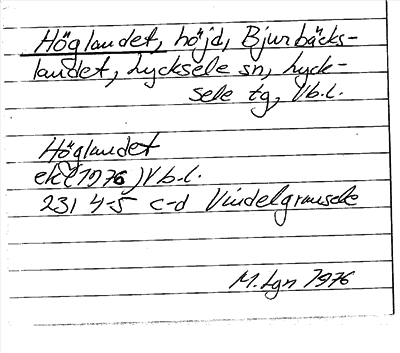 Höglandet, höjd, Bjurbäcks-
landet, Lycksele sn, Lyck-
sele tg, Vb.l.
Höglandet
ek (1976) Vb.l.
231 4-5 c-d Vindelgransele
M. Lgn 1976